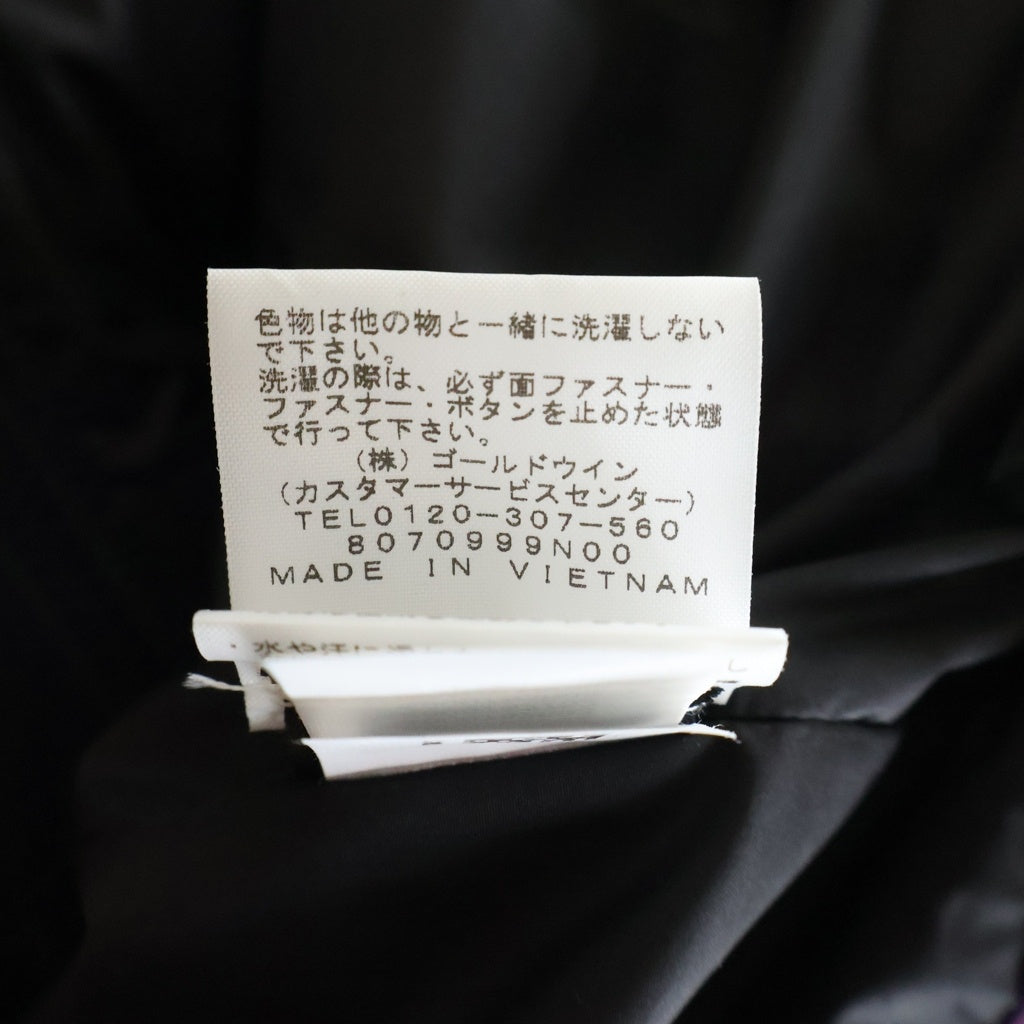 色物は他の物と一緒に洗濯しない
で下さい。
洗濯の際は、必ず面ファスナー・
ファスナー・ボタンを止めた状態
で行って下さい。
（株）ゴールドウイン
（カスタマーサービスセンター）
TEL0120-307-560
8070999N00
MADE IN VIETNAM